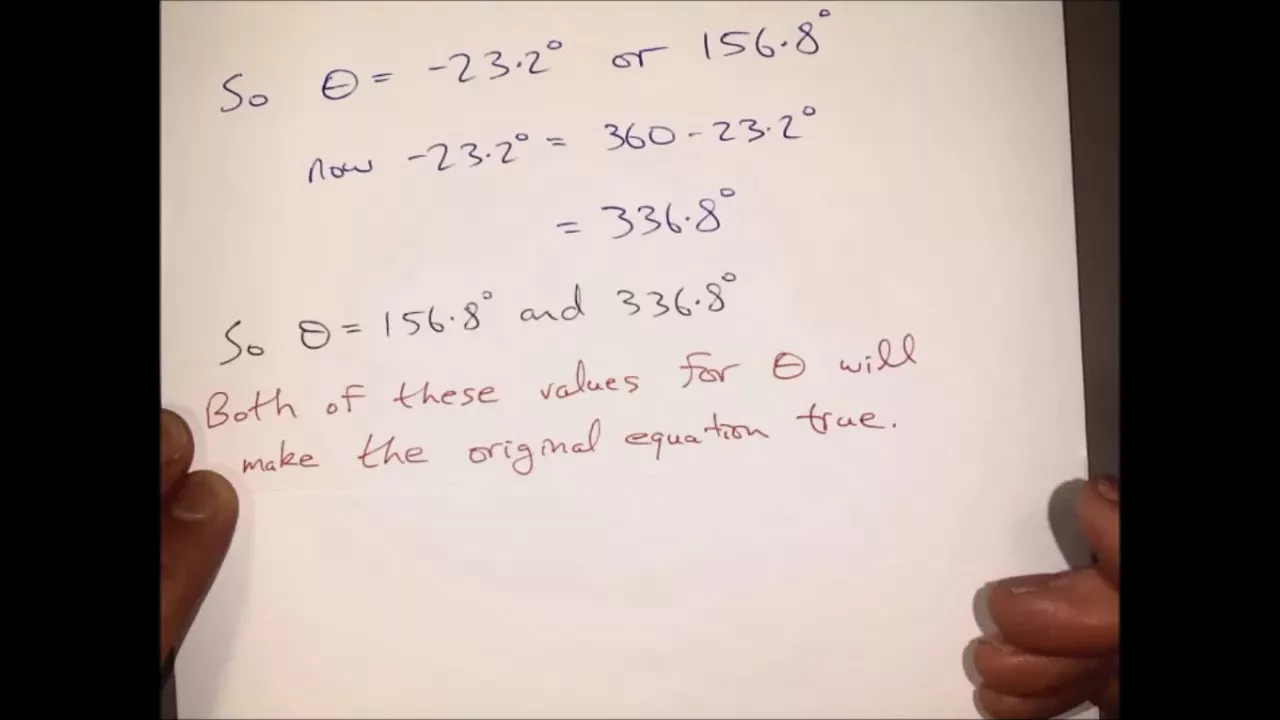 So θ = -23.2° or 156.8°
now -23.2° = 360 - 23.2°
= 336.8°
So θ = 156.8° and 336.8°
Both of these values for θ will
make the original equation true.